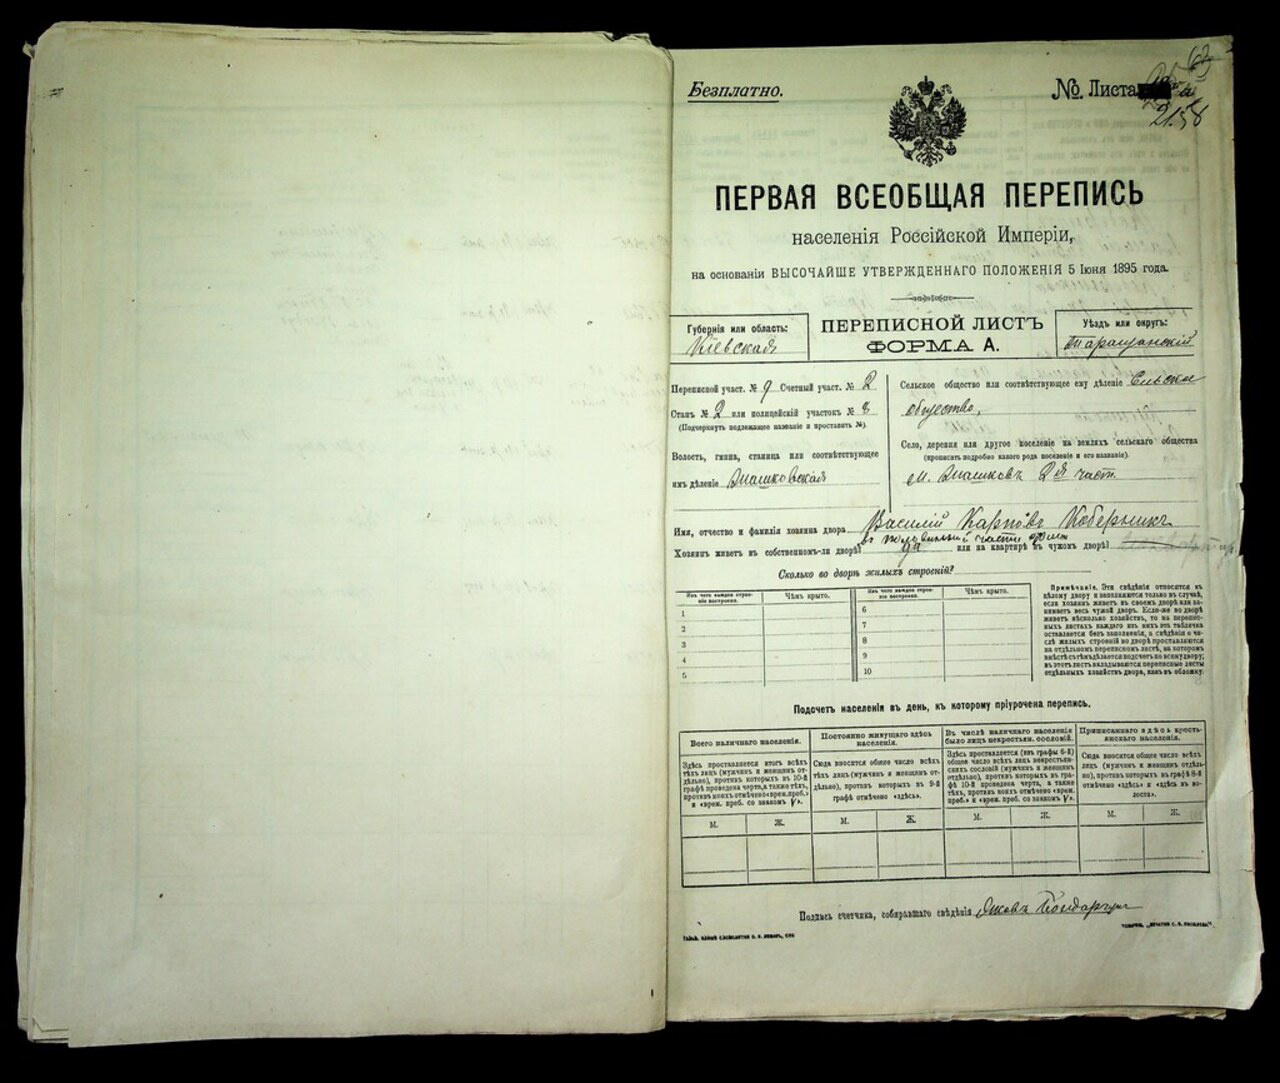 Безплатно.
№ Листа
ПЕРВАЯ ВСЕОБЩАЯ ПЕРЕПИСЬ
населенія Россійской Имперіи,
на основаніи ВЫСОЧАЙШЕ УТВЕРЖДЕННАГО ПОЛОЖЕНІЯ 5 Іюня 1895 года.
Губернія или область:
Кіевская
ПЕРЕПИСНОЙ ЛИСТЪ
ФОРМА А.
Уѣздъ или округъ:
Таращанскій
Переписной участ. № 9 Счетный участ. № 2
Станъ № 2 или полицейскій участокъ №
(Подчеркнуть подлежащее названіе и проставить №).
Волость, гмина, станица или соотвѣтствующее
имъ дѣленіе
Сельское общество или соотвѣтствующее ему дѣленіе Сельское
общество,
Село, деревня или другое поселеніе на земляхъ сельскаго общества
(прописать подробно какого рода поселеніе и его названіе).
м. 2я част.
Имя, отчество и фамилія хозяина двора Василій Карповъ Коберникъ
Хозяинъ живетъ въ собственномъ-ли дворѣ? да или на квартирѣ въ чужомъ дворѣ?
Сколько во дворѣ жилыхъ строеній?
Изъ чего каждое строеніе построено. Чѣмъ крыто. Изъ чего каждое строеніе построено. Чѣмъ крыто.
1 6
2 7
3 8
4 9
5 10
Примѣчаніе. Эти свѣдѣнія относятся къ
цѣлому двору и заполняются только въ случаѣ,
если хозяинъ живетъ въ своемъ дворѣ или занимаетъ
весь чужой дворъ. Если-же во дворѣ
живетъ нѣсколько хозяйствъ, то на переписныхъ
листахъ каждаго изъ нихъ эта табличка
оставляется безъ заполненія, а свѣдѣнія о числѣ
жилыхъ строеній во дворѣ проставляются
на отдѣльномъ переписномъ листѣ, на которомъ
вмѣстѣ съ тѣмъ дѣлается подсчетъ по всему двору;
въ этотъ листъ вкладываются переписные листы
отдѣльныхъ хозяйствъ двора, какъ въ обложку.
Подсчетъ населенія въ день, къ которому пріурочена перепись.
Всего наличнаго населенія.
Здѣсь проставляется итогъ всѣхъ
тѣхъ лицъ (мужчинъ и женщинъ отдѣльно),
противъ которыхъ въ 10-й
графѣ проведена черта, а также тѣхъ,
противъ коихъ отмѣчено «врем. преб.»
и «врем. преб. со знакомъ V».
Постоянно живущаго здѣсь
населенія.
Сюда вносится общее число всѣхъ
тѣхъ лицъ (мужчинъ и женщинъ отдѣльно),
противъ которыхъ въ 9-й
графѣ отмѣчено «здѣсь».
Въ числѣ наличнаго населенія
было лицъ некрестьян. сословій.
Здѣсь проставляется (въ графы 6-й)
общее число всѣхъ лицъ некрестьянскихъ
сословій (мужчинъ и женщинъ
отдѣльно), противъ которыхъ въ графѣ
10-й проведена черта, а также
тѣхъ, противъ коихъ отмѣчено «врем.
преб.» и «врем. преб. со знакомъ V».
Приписаннаго здѣсь крестьянскаго
населенія.
Сюда вносится общее число всѣхъ
лицъ (мужчинъ и женщинъ отдѣльно),
противъ которыхъ въ графѣ 8-й
отмѣчено «здѣсь» и «здѣсь въ волости».
М. Ж. М. Ж. М. Ж. М. Ж.
Подпись счетчика, собиравшаго свѣдѣнія Яковъ